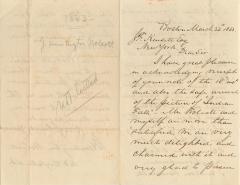 1863
Boston March 22d 1863.
New York
Dear Sir
I have great pleasure
in acknowledging receipt
of your note of the 18th inst
and also the safe arrival
of the picture of Indian
Falls. Mr. Wolcott and
myself are more than
satisfied. We are very
much delighted and
charmed with it and
very glad to